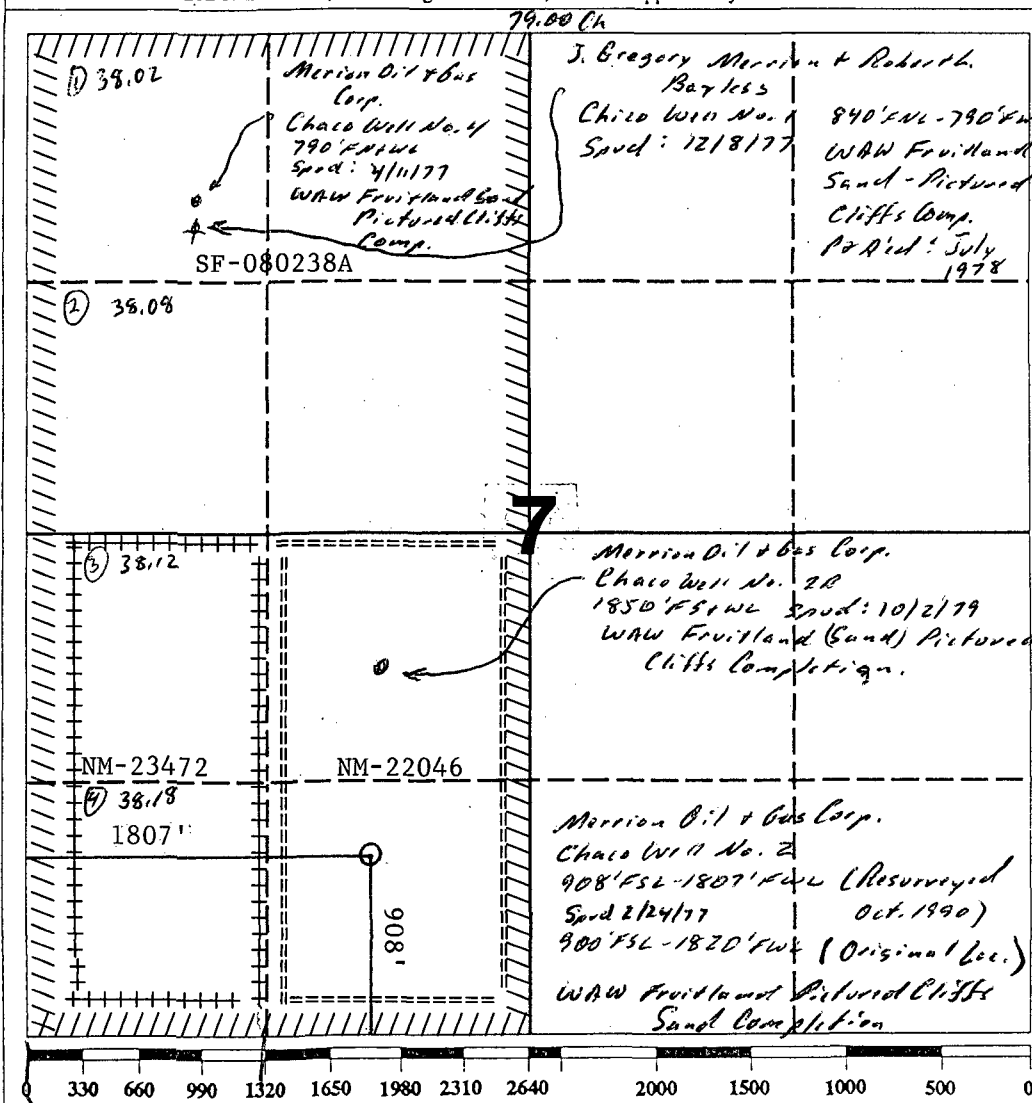 79.00 Ch
① 38.02
Merrion Oil & Gas
Corp.
Chaco Well No. 4
790' FN&WL
Spud: 4/11/77
WAW Fruitland Sand
Pictured Cliffs
Comp.
J. Gregory Merrion & Robert L.
Bayless
Chaco Well No. 1
Spud: 12/8/77
840' FNL-790' FW
WAW Fruitland
Sand-Pictured
Cliffs Comp.
P&A'ed: July
1978
SF-080238A
② 38.08
7
③ 38.12
Merrion Oil & Gas Corp.
Chaco Well No. 2R
1850' FS&WL Spud: 10/2/79
WAW Fruitland (Sand) Pictured
Cliffs Completion.
NM-23472
NM-22046
④ 38.18
1807'
908'
Merrion Oil & Gas Corp.
Chaco Well No. 2
908' FSL-1807' FWL (Resurveyed
Oct. 1990)
Spud 2/24/77
900' FSL-1820' FWL (Original Loc.)
WAW Fruitland Pictured Cliffs
Sand Completion
0 330 660 990 1320 1650 1980 2310 2640 2000 1500 1000 500 0